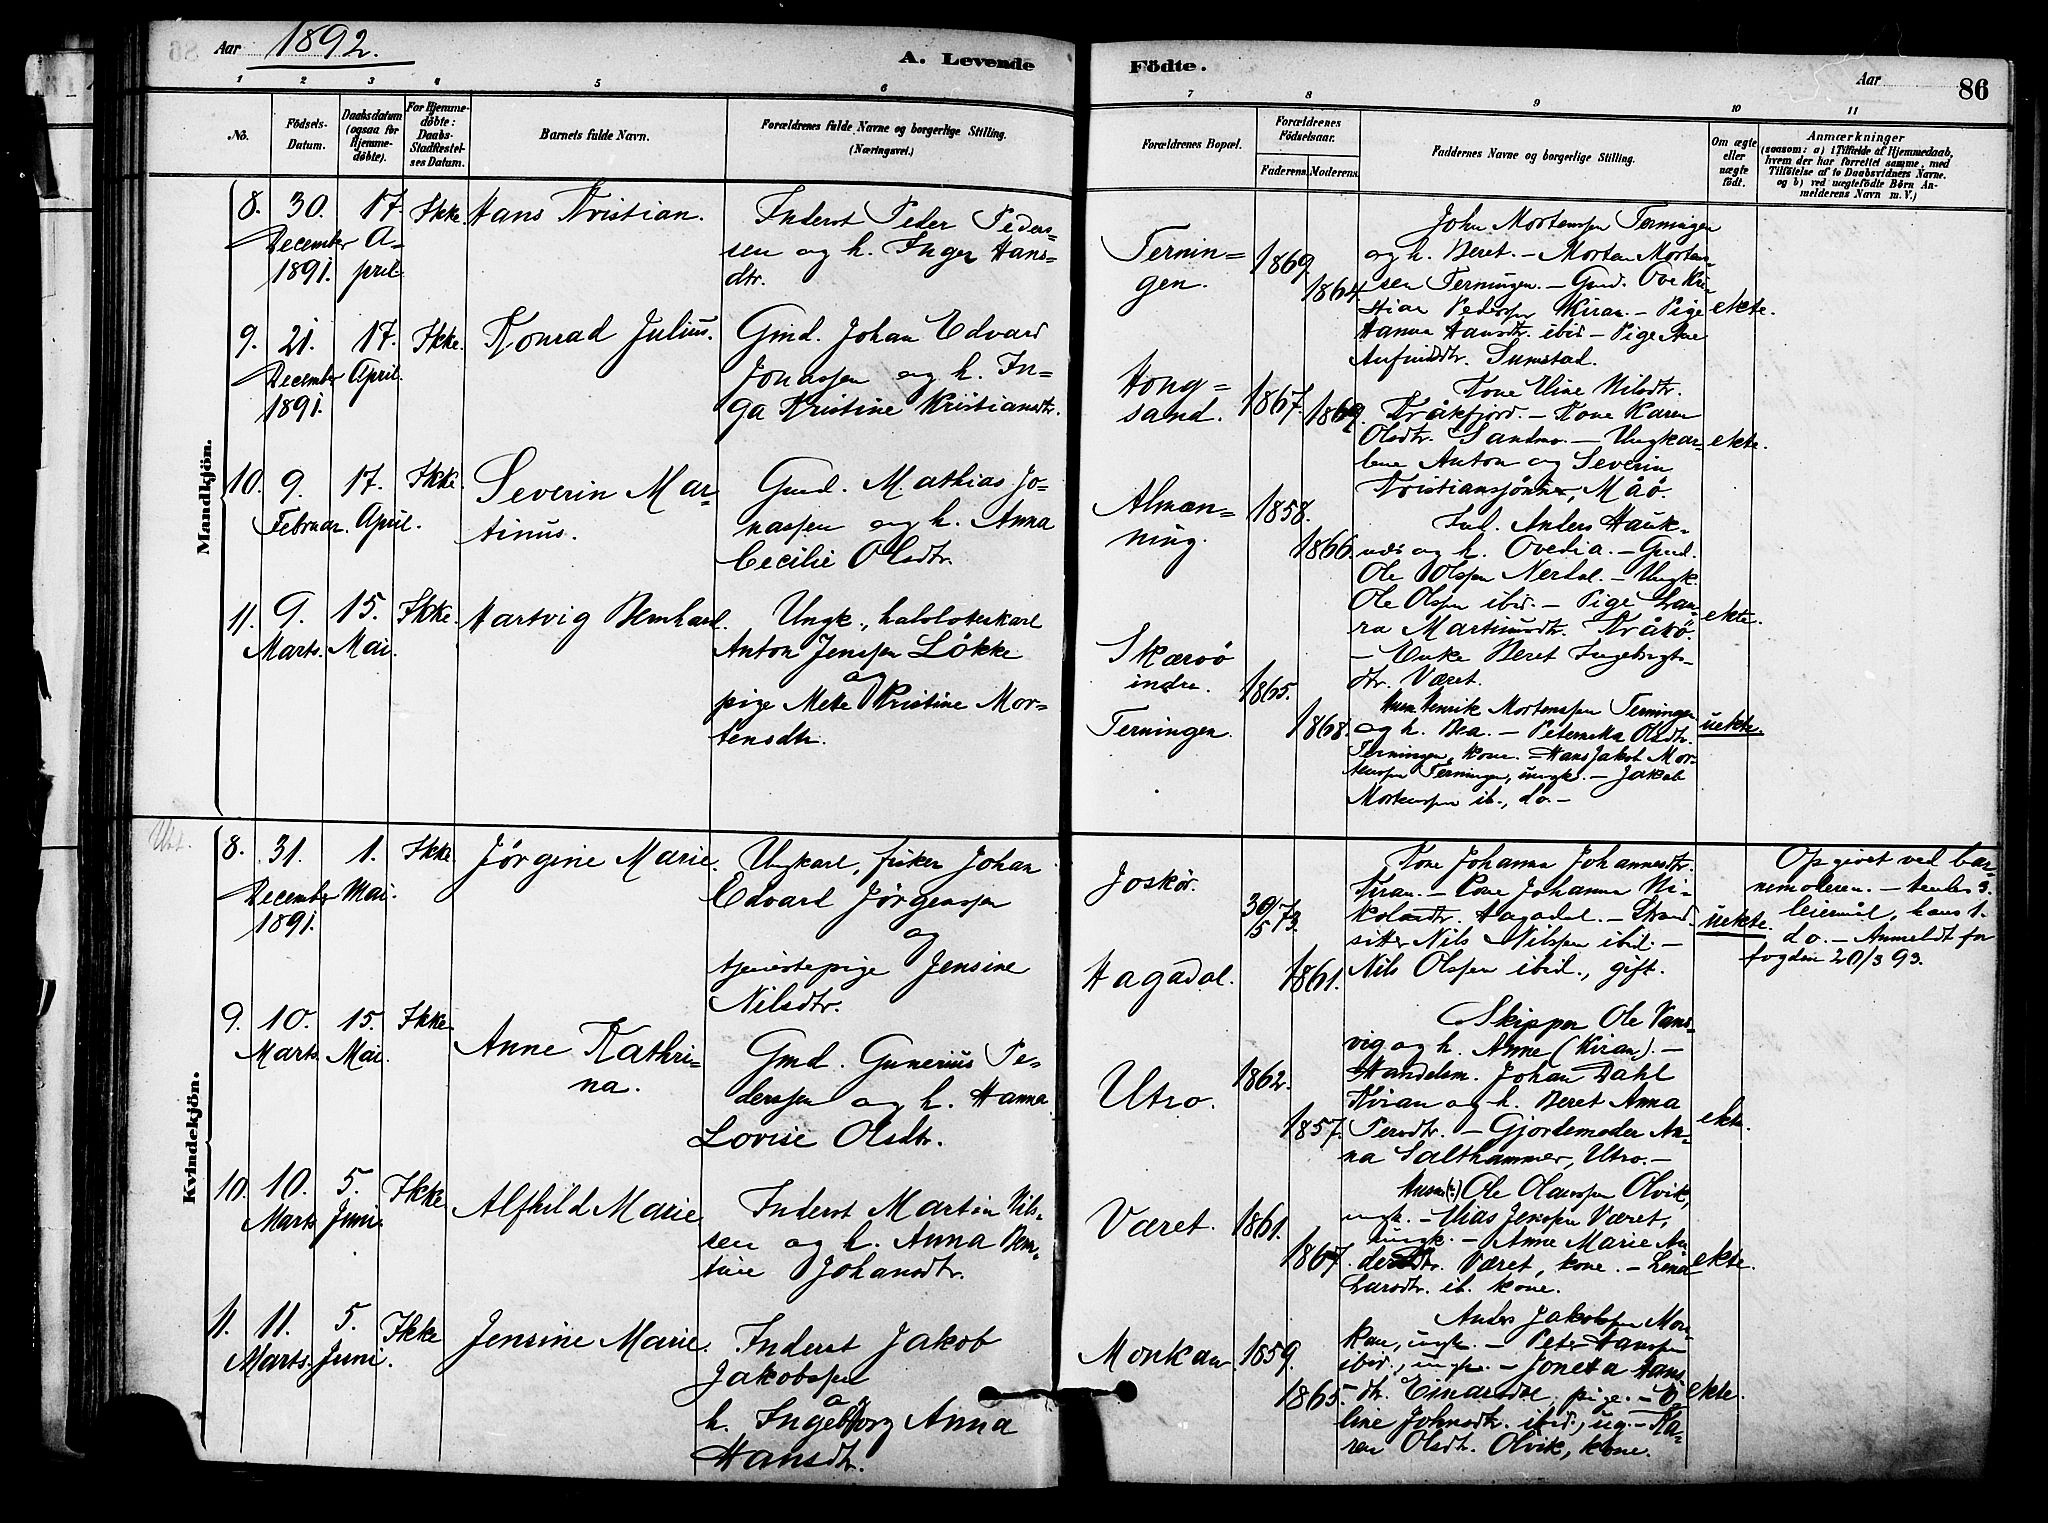 Aar 1892.
A. Levende
Födte.
Aar
86
1
2
3
4
5
6
7
8
9
10
11
No.
Födsels-
Datum.
Daabsdatum
(ogsaa for
Hjemme-
døbte).
For Hjemme-
døbte:
Daabs-
Stadfæstel-
ses Datum.
Barnets fulde Navn.
Forældrenes fulde Navne og borgerlige Stilling.
(Næringsvei.)
Forældrenes Bopæl.
Forældrenes
Födselsaar.
Faderens.
Moderens.
Faddernes Navne og borgerlige Stilling.
Om ægte
eller
uægte
født.
Anmærkninger
(saasom: a) i Tilfælde af Hjemmedaab,
hvem der har forrettet samme, med
Tilføielse af to Daabsvidners Navne.
og b) ved uægtefødte Børn An-
melderens Navn m. V.)
Mandkjön.
8.
30.
December
1891.
17.
A-
pril.
Ikke.
Hans Kristian.
Inderst Peder Peders-
sen og h. Inger Hans-
dtr.
Ternin-
gen.
1869.
1864.
John Mortenssen Terningen
og h. Beret. - Morten Mortens-
sen Terningen. - Gmd. Ove Kri-
stian Pederssen Kiran. - Pige
Hanna Hansdtr. ibid - Pige Ane
Anfindsdtr. Sumstad.
ekte.
9.
21.
December
1891.
17.
April.
Ikke.
Konrad Julius.
Gmd. Johan Edvard
Jonassen og h. In-
ga Kristine Kristiansdtr.
Hong-
sand.
1867.
1869.
Kone Eline Nilsdtr.
Kråkfjord. - Kone Karen
Olsdtr. Sandmo. - Ungkar-
lene Anton og Severin
Kristiansønner, Måø.
ekte.
10.
9.
Februar.
17.
April.
Ikke.
Severin Mar-
tinus.
Gmd. Mathias Jo-
nassen og h. Anna
Cecilie Olsdtr.
Almæn-
ning.
1858.
1866.
Ind. Anders Hauk-
nes og h. Ovedia. - Gmd.
Ole Olssen Nerdal. - Ungk.
Ole Olssen ibid. - Pige Lau-
ra Martinusdtr. Kråkø.
- Enke Beret Ingebrigts-
dtr. Været.
ekte.
11.
9.
Marts.
15.
Mai.
Ikke.
Hartvig Bernhard.
Ungk., halvloterkarl
Anton Jenssen Løkke
og
pige Mette Kristine Mor-
tensdtr.
Skærvø
indre.
Terningen.
1865.
1868.
Henrik Mortenssen Terningen
og h. Bea. - Peternella Olsdtr.
Terningen, kone. - Hans Jakob Mor-
tenssen Terningen, ungk. - Jakob
Mortenssen ib., do. -
uekte.
Kvindekjön.
Ubt.
8.
31.
December
1891.
1.
Mai.
Ikke.
Jørgine Marie.
Ungkarl, fisker Johan
Edvard Jørgenssen
og
tjenestepige Jensine
Nilsdtr.
Joskør.
Hagadal.
30/5 73.
1861.
Kone Johanna Johannesdtr.
Kiran. - Kone Johanna Ni-
kolasdtr. Hagadal. - Strand-
sitter Nils Nilssen ibid. -
Nils Olssen ibid., gift.
uekte.
Opgivet ved bar-
nemoderen. - hendes 3.
leiermål, hans 1.
do. - Anmeldt for
fogden 20/3 93.
9.
10.
Marts
15.
Mai.
Ikke.
Anne Kathri-
na.
Gmd. Gunerius Pe-
derssen og h. Hanna
Lovise Olsdtr.
Utro.
1862.
1857.
Skipper Ole Vans-
vig og h. Anne (Kiran). -
Handelsm. Johan Dahl
Kiran og h. Beret Anna
Persdtr. - Gjordemoder An-
na Salthammer, Utro. -
ekte.
10.
10.
Marts
5.
Juni.
Ikke
Alfhild Marie
Inderst Martin Nils-
sen og h. Anna Bern-
tine Johansdtr.
Været.
1861.
1867.
Ole Olaussen Olvik,
ungk. - Elias Jenssen Været,
ungk. - Anne Marie An-
dersdtr. Været, kone. - Lena
Larsdtr. ib. kone.
ekte.
11.
11.
Marts.
5.
Juni.
Ikke
Jensine Marie.
Inderst Jakob
Jakobssen
og
h. Ingeborg Anna
Hansdtr.
Monkan
1859.
1865.
Anders Jakobssen Mon-
kan, ungk. - Peter Hanssen
ibid., ungk. - Joneta Hans-
dtr. Einarsdal pige. -
line Johnsdtr. ibid., ug. - Ka-
ren Olsdtr. Olvik, kone.
ekte.